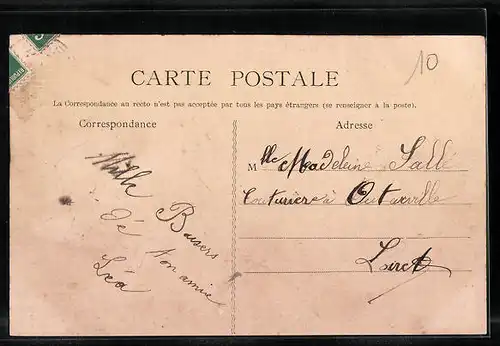 10
CARTE POSTALE
La Correspondance au recto n'est pas acceptée par tous les pays étrangers (se renseigner à la poste).
Correspondance
Adresse
Mille
Baisers
de
ton amie
Léa
Mlle Madeleine Sallé
Couturière à Outarville
Loiret